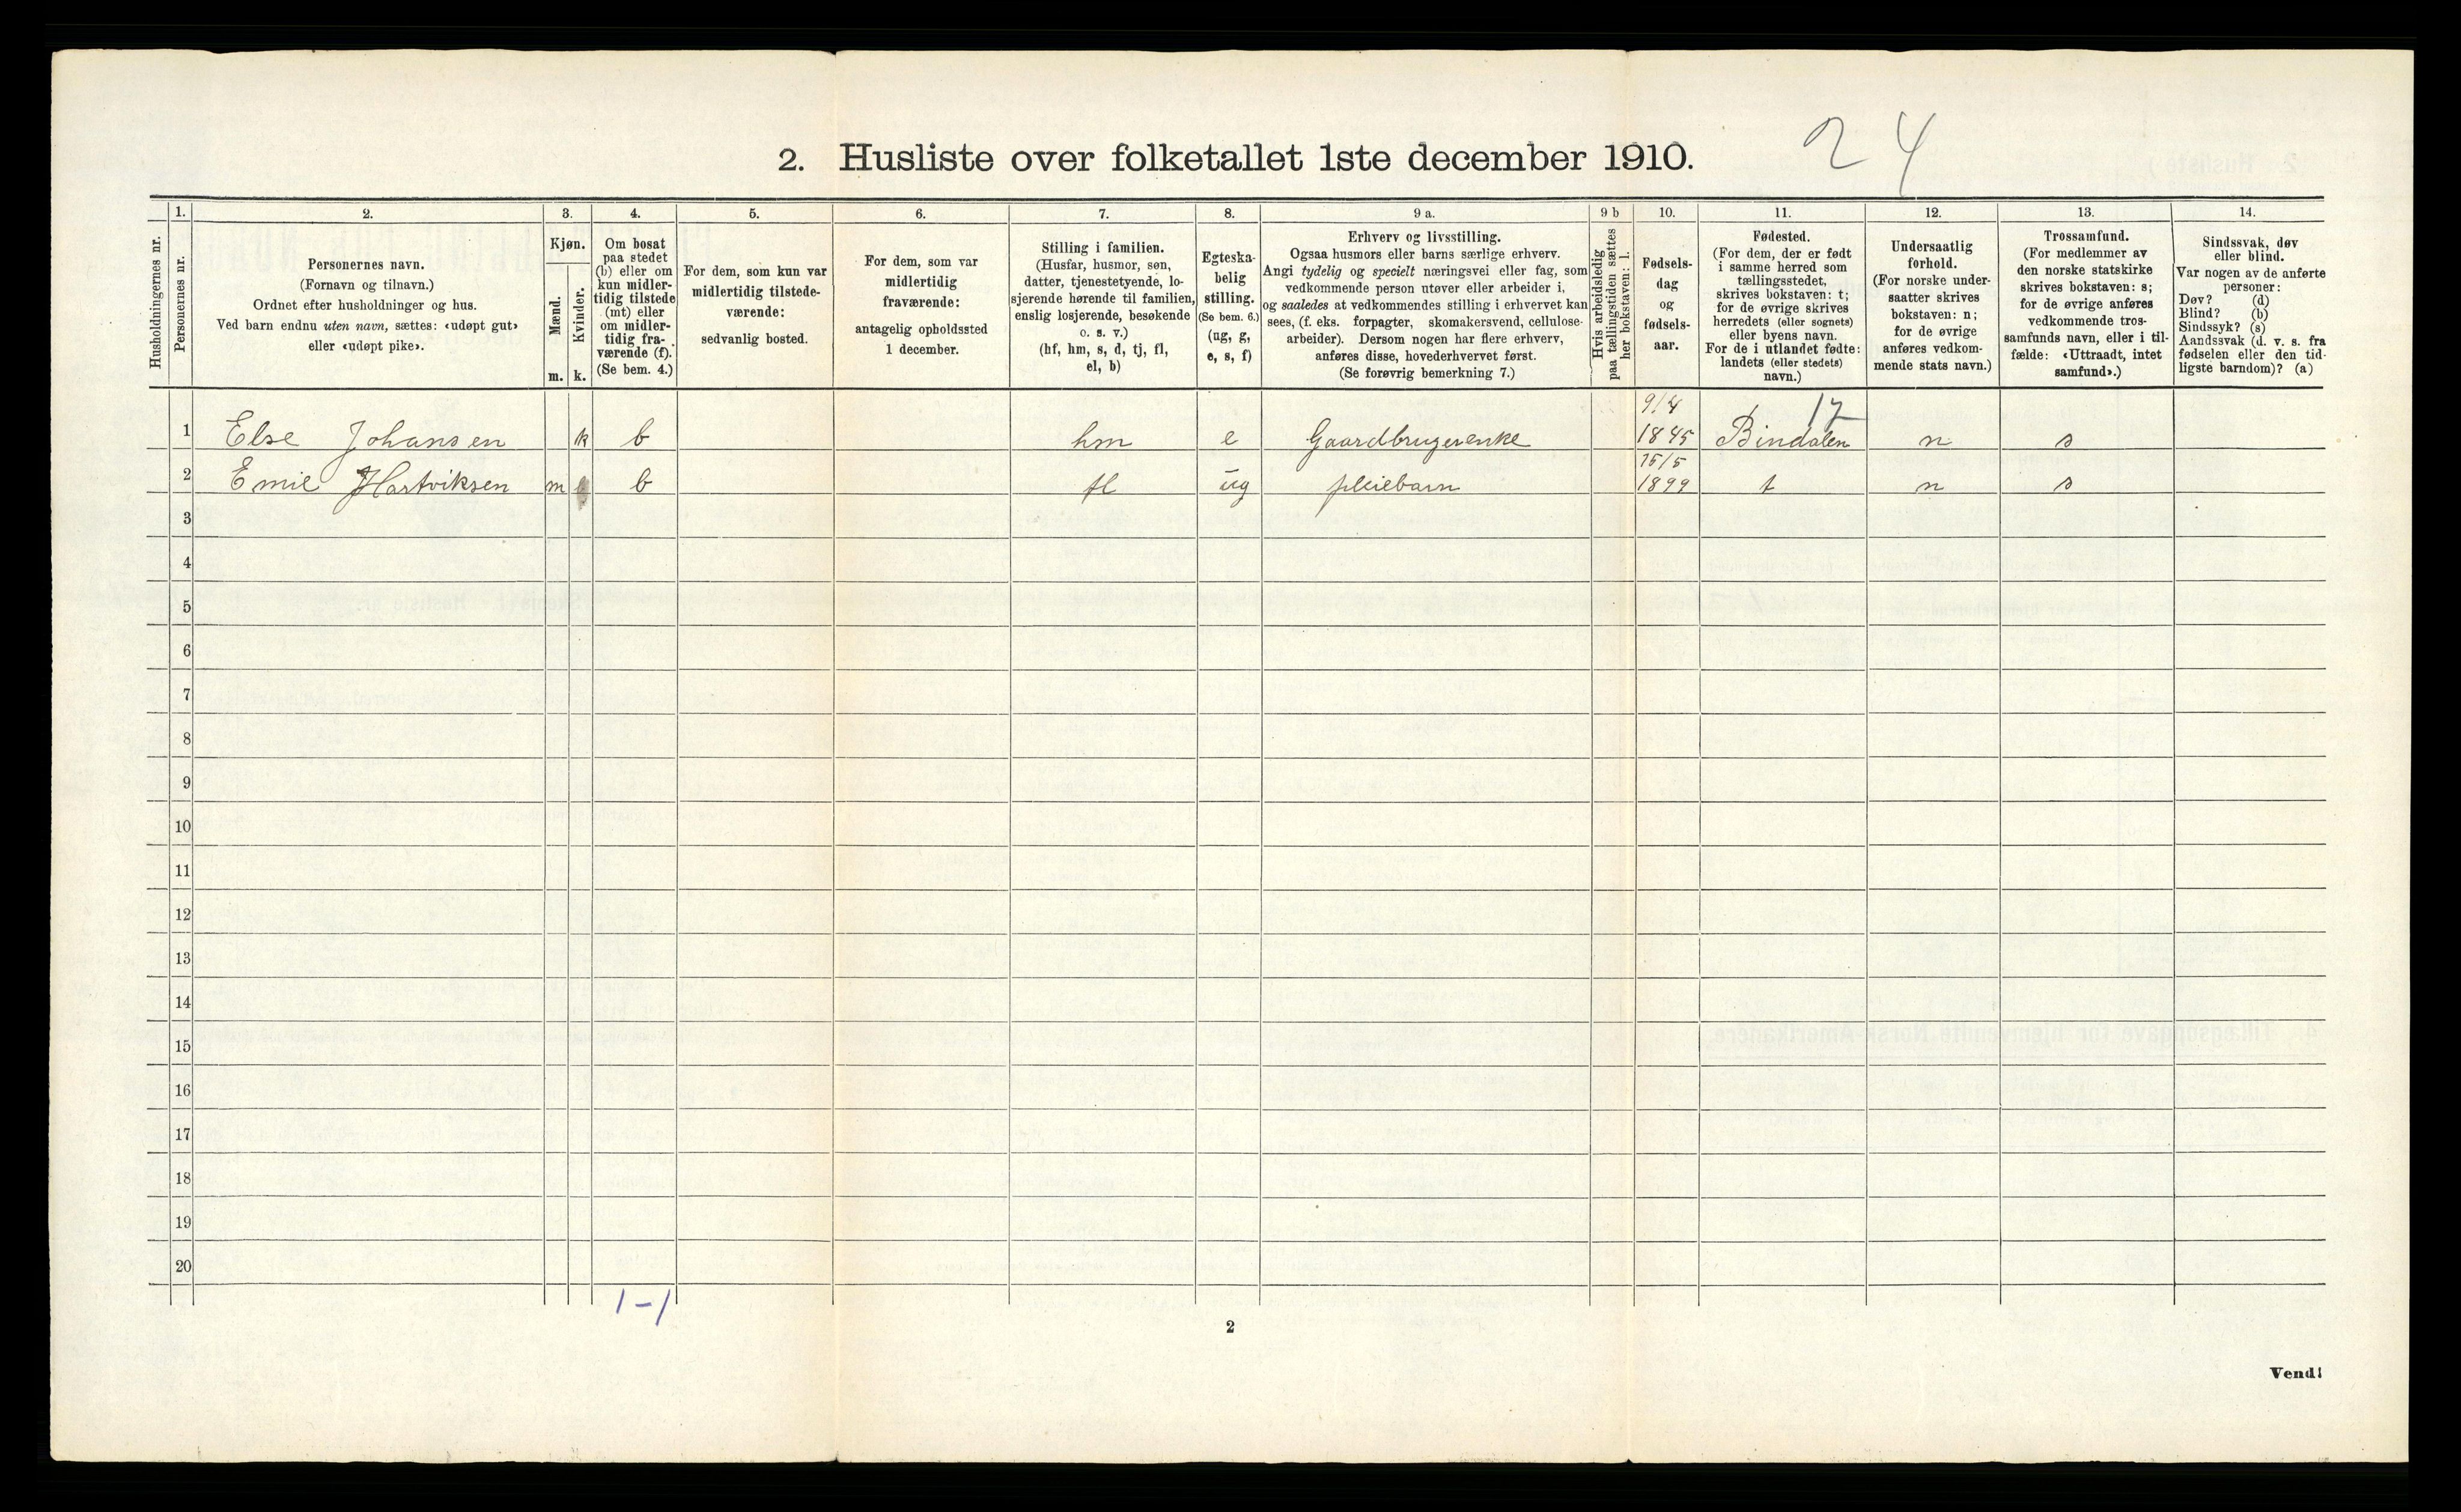 24
2. Husliste over folketallet 1ste december 1910.
Husholdningernes nr.
1.
Personernes nr.
2.
Personernes navn.
(Fornavn og tilnavn.)
Ordnet efter husholdninger og hus.
Ved barn endnu uten navn, sættes: «udøpt gut»
eller «udøpt pike».
3.
Kjøn.
Mænd.
Kvinder.
m. k.
4.
Om bosat
paa stedet
(b) eller om
kun midler-
tidig tilstede
(mt) eller
om midler-
tidig fra-
værende (f).
(Se bem. 4.)
5.
For dem, som kun var
midlertidig tilstede-
værende:
sedvanlig bosted.
6.
For dem, som var
midlertidig
fraværende:
antagelig opholdssted
1 december.
7.
Stilling i familien.
(Husfar, husmor, søn,
datter, tjenestetyende, lo-
sjerende hørende til familien,
enslig losjerende, besøkende
o. s. v.)
(hf, hm, s, d, tj, fl,
el, b)
8.
Egteska-
belig
stilling.
(Se bem. 6.)
(ug, g,
e, s, f)
9 a.
Erhverv og livsstilling.
Ogsaa husmors eller barns særlige erhverv.
Angi tydelig og specielt næringsvei eller fag, som
vedkommende person utøver eller arbeider i,
og saaledes at vedkommendes stilling i erhvervet kan
sees, (f. eks. forpagter, skomakersvend, cellulose-
arbeider). Dersom nogen har flere erhverv,
anføres disse, hovederhvervet først.
(Se forøvrig bemerkning 7.)
9 b
Hvis arbeidsledig
paa tællingstiden sættes
her bokstaven: l.
10.
Fødsels-
dag
og
fødsels-
aar.
11.
Fødested.
(For dem, der er født
i samme herred som
tællingsstedet,
skrives bokstaven: t;
for de øvrige skrives
herredets (eller sognets)
eller byens navn.
For de i utlandet fødte:
landets (eller stedets)
navn.)
12.
Undersaatlig
forhold.
(For norske under-
saatter skrives
bokstaven: n;
for de øvrige
anføres vedkom-
mende stats navn.)
13.
Trossamfund.
(For medlemmer av
den norske statskirke
skrives bokstaven: s;
for de øvrige anføres
vedkommende tros-
samfunds navn, eller i til-
fælde: «Uttraadt, intet
samfund».)
14.
Sindssvak, døv
eller blind.
Var nogen av de anførte
personer:
Døv? (d)
Blind? (b)
Sindssyk? (s)
Aandssvak (d. v. s. fra
fødselen eller den tid-
ligste barndom)? (a)
9/4 17
1 Else Johansen k b hm e Gaardbrugerenke 1845 Bindalen n s
15/5
2 Emil Hartviksen m b fl ug pleiebarn 1899 t n s
3
4
5
6
7
8
9
10
11
12
13
14
15
16
17
18
19
20
1-1
2
Vend!